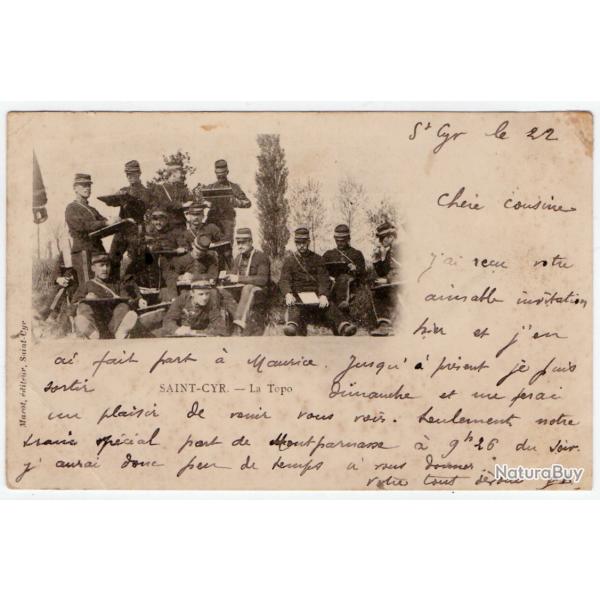 St Cyr le 22
Chère cousine
j'ai recu votre
aimable invitation
hier et j'en
ai fait part à Maurice. Jusqu'à présent je puis
sortir dimanche et me ferai
SAINT-CYR. — La Topo
un plaisir de venir vous voir. Seulement notre
train spécial part de Montparnasse à 9h26 du soir.
j'aurai donc peu de temps à vous donner.
votre tout dévoué
Marot, éditeur, Saint-Cyr
NaturaBuy